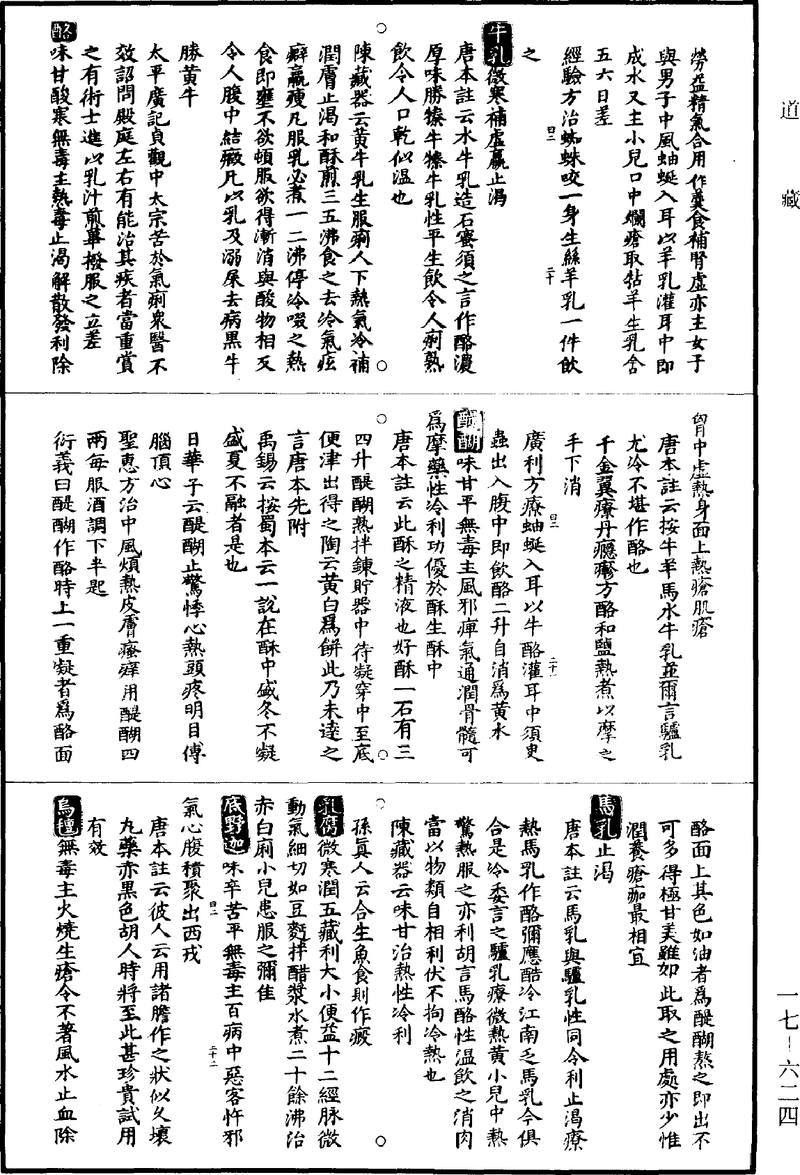 道藏
勞益精氣合用作羹食補腎虛亦主女子
與男子中風蚰蜒入耳以羊乳灌耳中即
成水又主小兒口中爛瘡取牯羊生乳含
五六日差
經驗方治蜘蛛咬一身生絲羊乳一件飲
之
牛乳微寒補虛羸止渴
唐本註云水牛乳造石蜜須之言作酪濃
厚味勝㹀牛㹀牛乳性平生飲令人痢熟
飲令人口乾似溫也
陳藏器云黃牛乳生服痢人下熱氣冷補
潤膚止渴和酥煎三五沸食之去冷氣痃
癖羸瘦凡服乳必煮一二沸停冷啜之熱
食即壅不欲頓服欲得漸消與酸物相反
令人腹中結癥凡以乳及溺屎去病黑牛
勝黃牛
太平廣記貞觀中太宗苦於氣痢眾醫不
效詔問殿庭左右有能治其疾者當重賞
之有術士進以乳汁煎蓽撥服之立差
酪味甘酸寒無毒主熱毒止渴解散發利除
胷中虛熱身面上熱瘡肌瘡
唐本註云按牛羊馬水牛乳並爾言驢乳
尤冷不堪作酪也
千金翼療丹癮𤺋方酪和鹽熱煮以摩之
手下消
廣利方療蚰蜒入耳以牛酪灌耳中須臾
蟲出入腹中即飲酪二升自消爲黃水
醍醐味甘平無毒主風邪痺氣通潤骨髓可
爲摩藥性冷利功優於酥生酥中
唐本註云此酥之精液也好酥一石有三
四升醍醐熱拌鍊貯器中待凝穿中至底
便津出得之陶云黃白爲餅此乃未達之
言唐本先附
禹錫云按蜀本云一說在酥中盛冬不凝
盛夏不融者是也
日華子云醍醐止驚悸心熱頭疼明目傅
腦頂心
聖惠方治中風煩熱皮膚瘙癢用醍醐四
兩每服酒調下半匙
衍義曰醍醐作酪時上一重凝者爲酪面
酪面上其色如油者爲醍醐熬之即出不
可多得極甘美雖如此取之用處亦少惟
潤養瘡痂最相宜
馬乳止渴
唐本註云馬乳與驢乳性同冷利止渴療
熱馬乳作酪彌應酷冷江南乏馬乳今俱
合是冷委言之驢乳療微熱黃小兒中熱
驚熱服之亦利胡言馬酪性溫飲之消肉
當以物類自相利伏不拘冷熱也
陳藏器云味甘治熱性冷利
孫真人云合生魚食則作瘕
乳腐微寒潤五藏利大小便益十二經脉微
動氣細切如豆麪拌醋漿水煮二十餘沸治
赤白痢小兒患服之彌佳
底野迦味辛苦平無毒主百病中惡客忤邪
氣心腹積聚出西戎
唐本註云彼人云用諸膽作之狀似久壞
丸藥亦黑色胡人時將至此甚珍貴試用
有效
烏氊無毒主火燒生瘡令不著風水止血除
一七–六二四